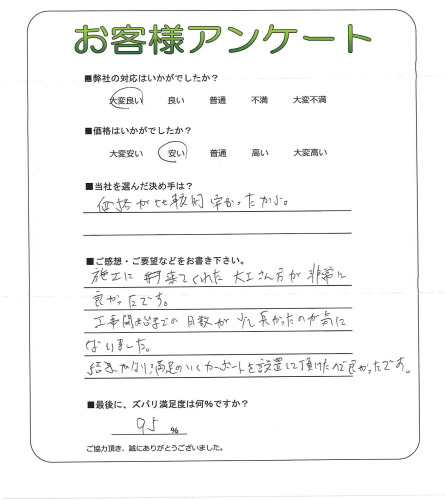 お客様アンケート
■弊社の対応はいかがでしたか？
大変良い 良い 普通 不満 大変不満
■価格はいかがでしたか？
大変安い 安い 普通 高い 大変高い
■当社を選んだ決め手は？
価格が比較的安かったから。
■ご感想・ご要望などをお書き下さい。
施工に来てくれた大工さん方が非常に
良かったです。
工事開始までの日数が少し長かったのが気に
なりました。
結果かなり満足のいくカーポートを設置して頂けたので良かったです。
■最後に、ズバリ満足度は何％ですか？
95 %
ご協力頂き、誠にありがとうございました。